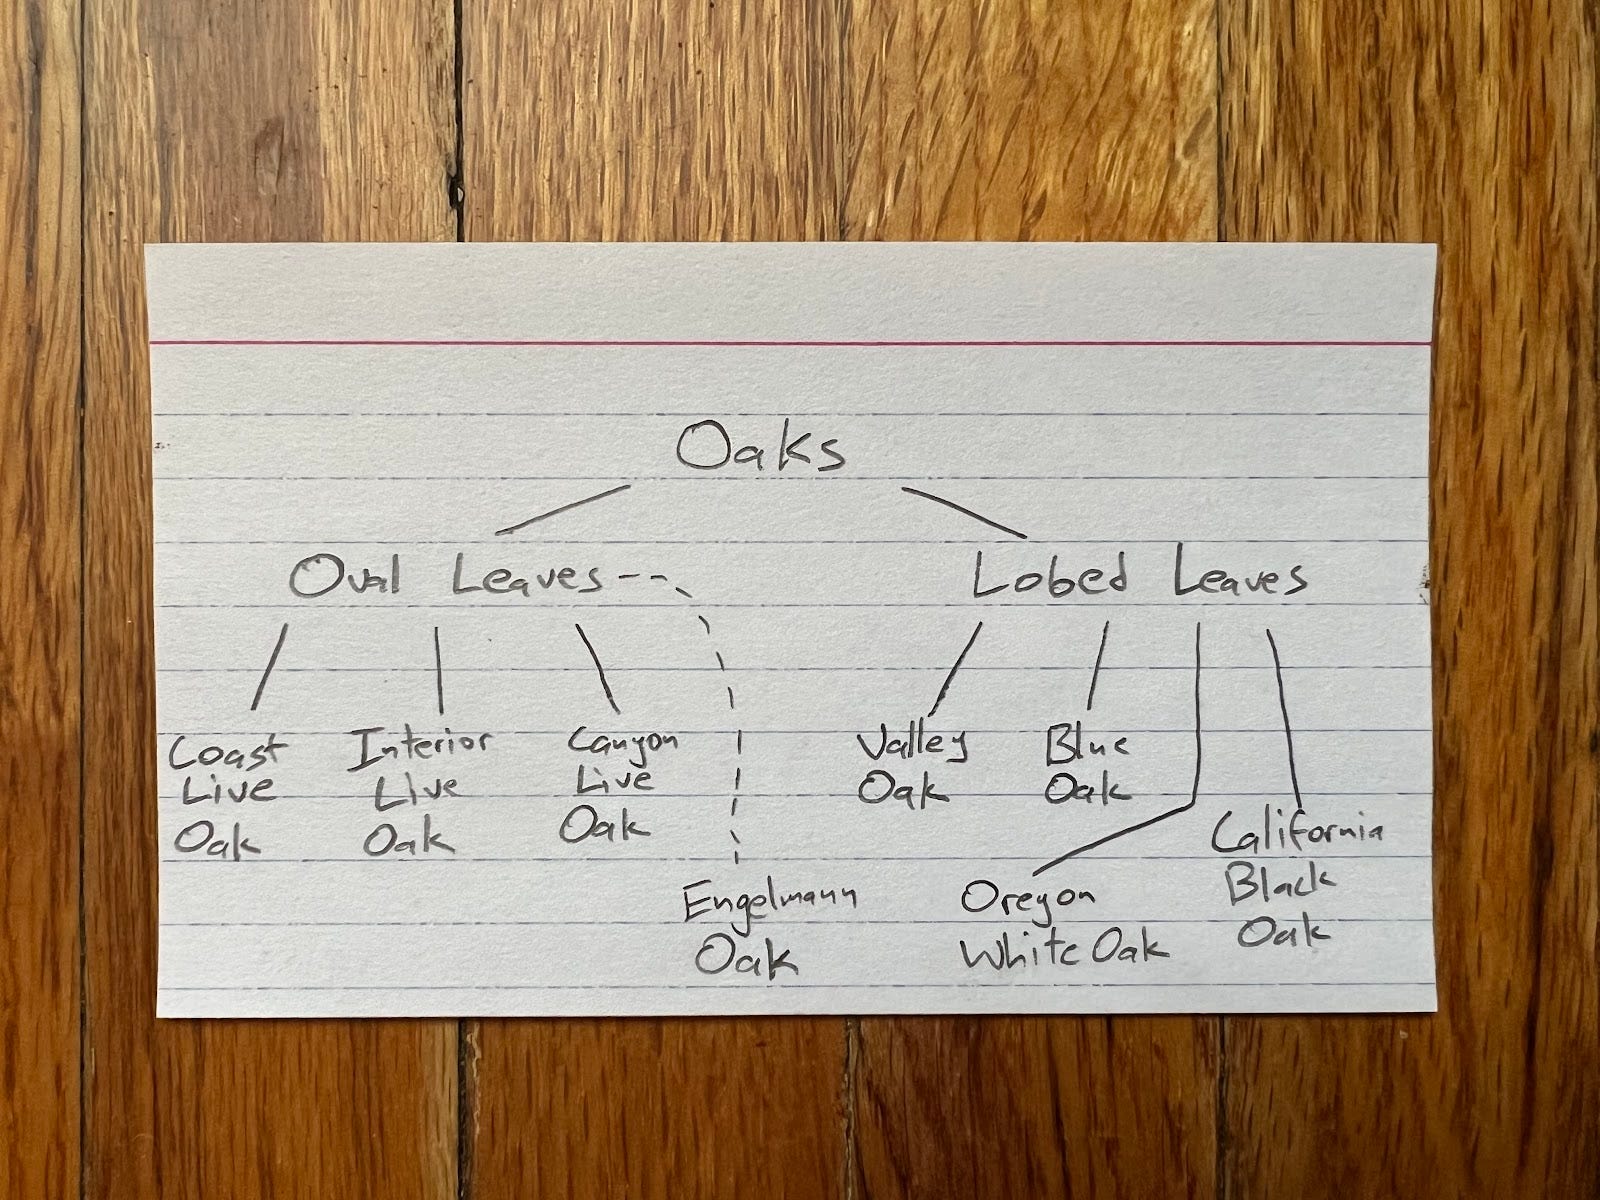 Oaks
Oval Leaves
Lobed Leaves
Coast
Live
Oak
Interior
Live
Oak
Canyon
Live
Oak
Engelmann
Oak
Valley
Oak
Blue
Oak
Oregon
White Oak
California
Black
Oak